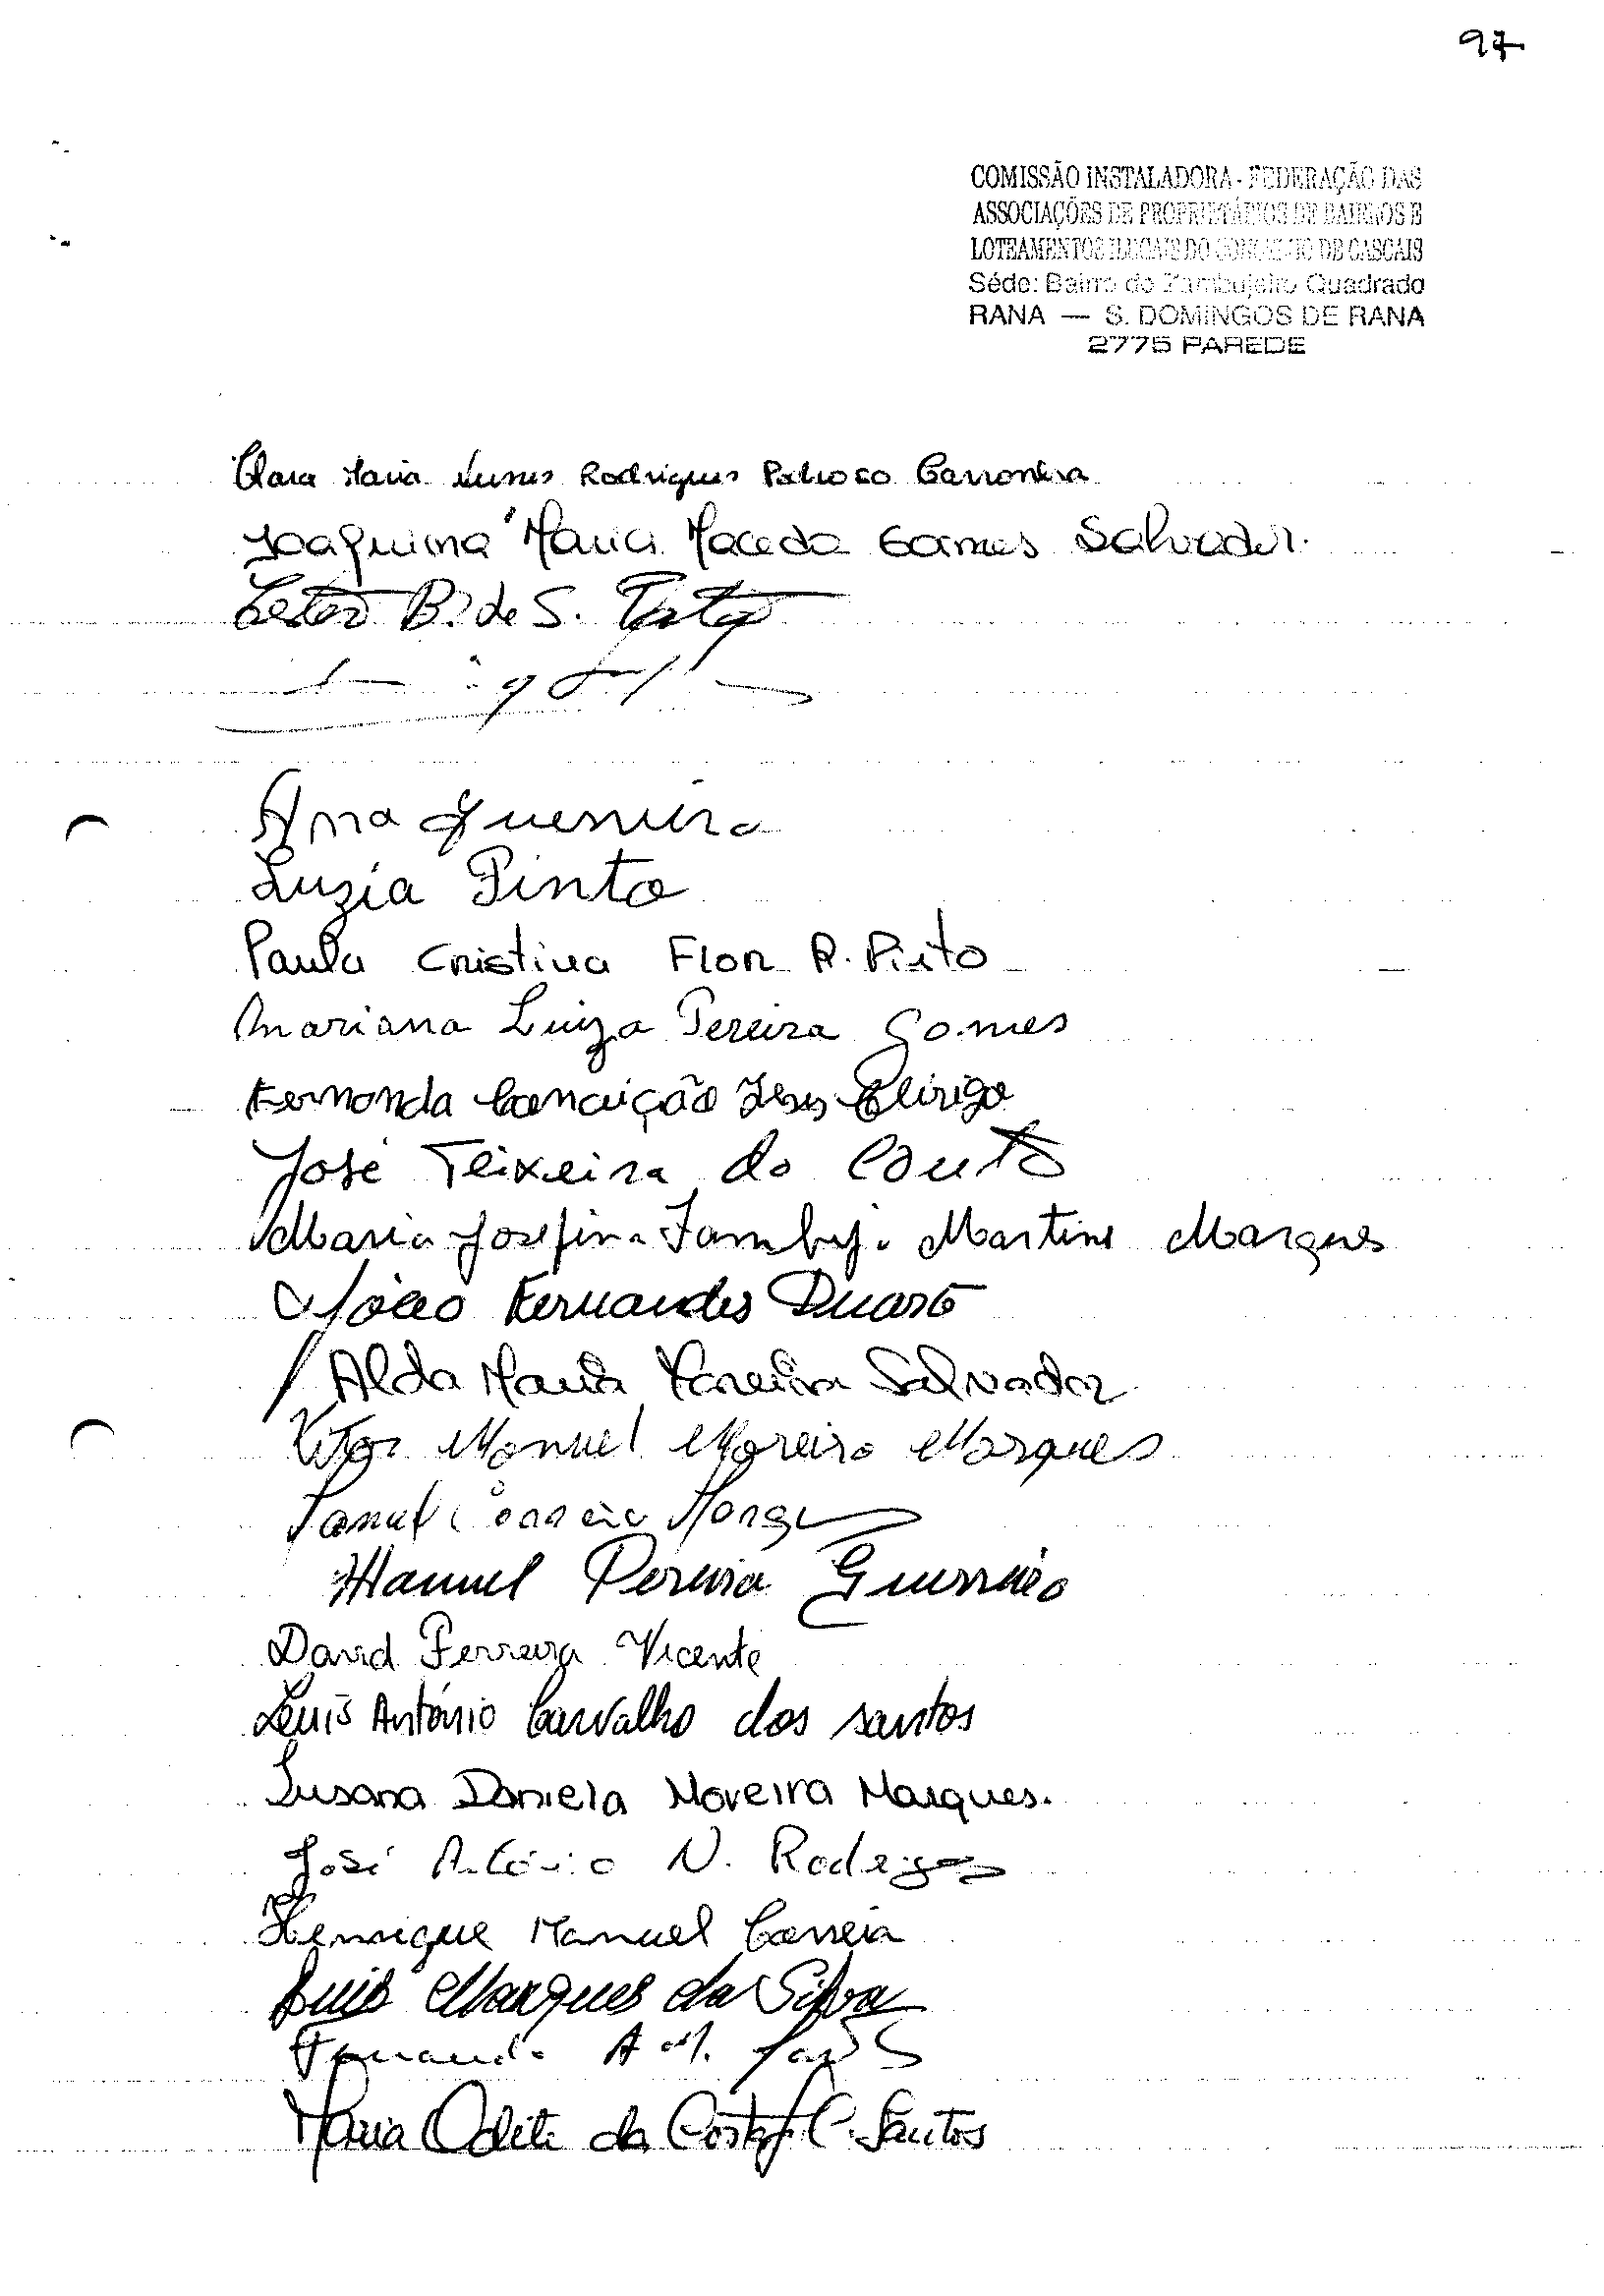 97
COMISSÃO INSTALADORA - FEDERAÇÃO DAS
ASSOCIAÇÕES DE PROPRIETÁRIOS DE BAIRROS E
LOTEAMENTOS ILEGAIS DO CONCELHO DE CASCAIS
Séde: Bairro do Zambujeiro Quadrado
RANA — S. DOMINGOS DE RANA
2775 PAREDE
Clara Maria Nunes Rodrigues Pedroso
Joaquima Maria Macedo Gomes Salvador.
B. de S.
Ana Guerreiro
Luzia Pinto
Paula Cristina Flor R. Pinto
Mariana Luiza Pereira Gomes
Fernanda Conceição Jesus
José Teixeira do Couto
Maria Josefina Martins Marques
João Fernandes Duarte
Alda Maria Moreira Salvador
Vitor Manuel Moreira Marques
Manuel Correia
Manuel Pereira Guerreiro
David Ferreira Vicente
Luís António Carvalho dos Santos
Susana Daniela Moreira Marques.
José António N. Rodrigues
Henrique Manuel Correia
Luis Marques da Silva
Fernando A. M.
Maria Odete da Costa C. Santos